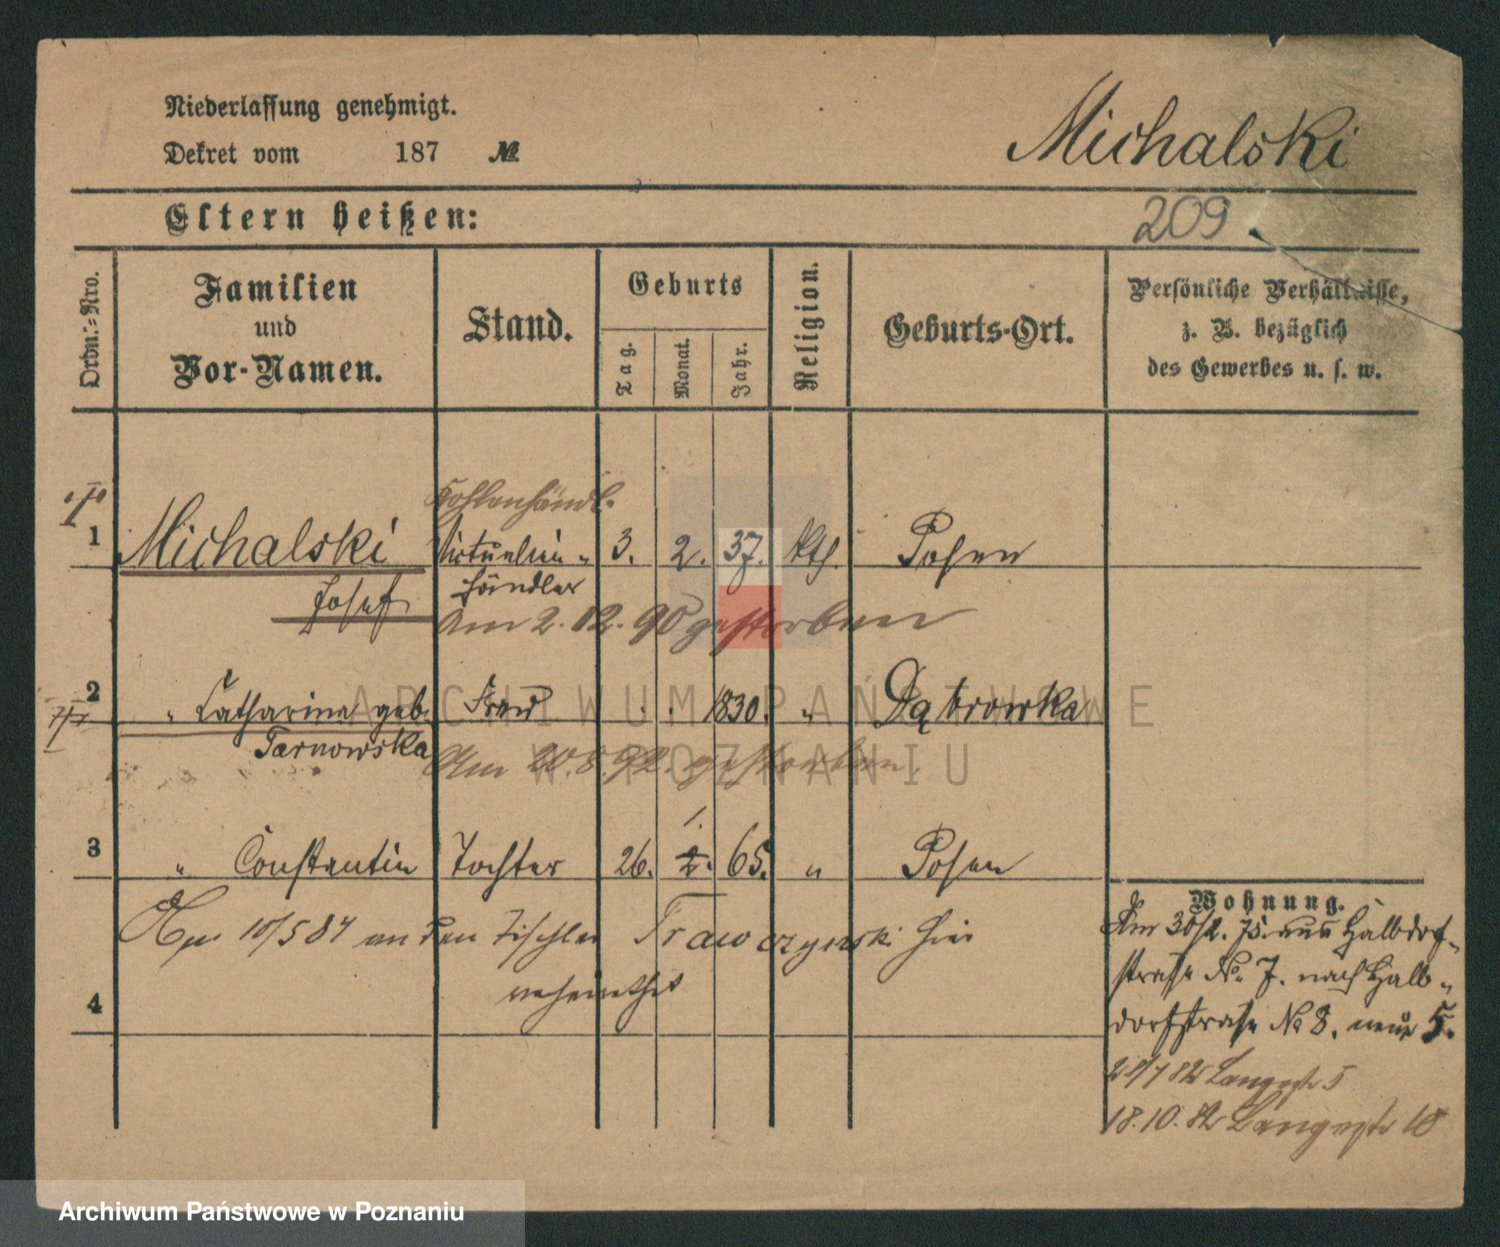 Niederlassung genehmigt.
Dekret vom 187 №
Michalski
Eltern heißen:
209.
Ordn.-Nro.
Familien
und
Vor-Namen.
Stand.
Geburts
Tag.
Monat.
Jahr.
Religion.
Geburts-Ort.
Persönliche Verhältnisse,
z. B. bezüglich
des Gewerbes u. s. w.
Kohlenhändl.
1 Michalski Victualien- 3. 2. 37. kth. Posen
Josef händler
Am 2. 12. 90 gestorben
2 " Catharina geb. Frau . . 1830. " Dąbrowka
Tarnowska
Am 20.8.92. gestorben
1.
3 " Constantia Tochter 26. 2. 65. " Posen
10/5 87 an den Tischler hier
verheirathet
4
Wohnung.
Am 30/12. 75. aus Halbdorf-
straße No. 7. nach Halb-
dorfstraße No 8. neue 5.
82 Langestr 5
18.10.82 Langestr 18
ARCHIWUM PAŃSTWOWE
W POZNANIU
Archiwum Państwowe w Poznaniu